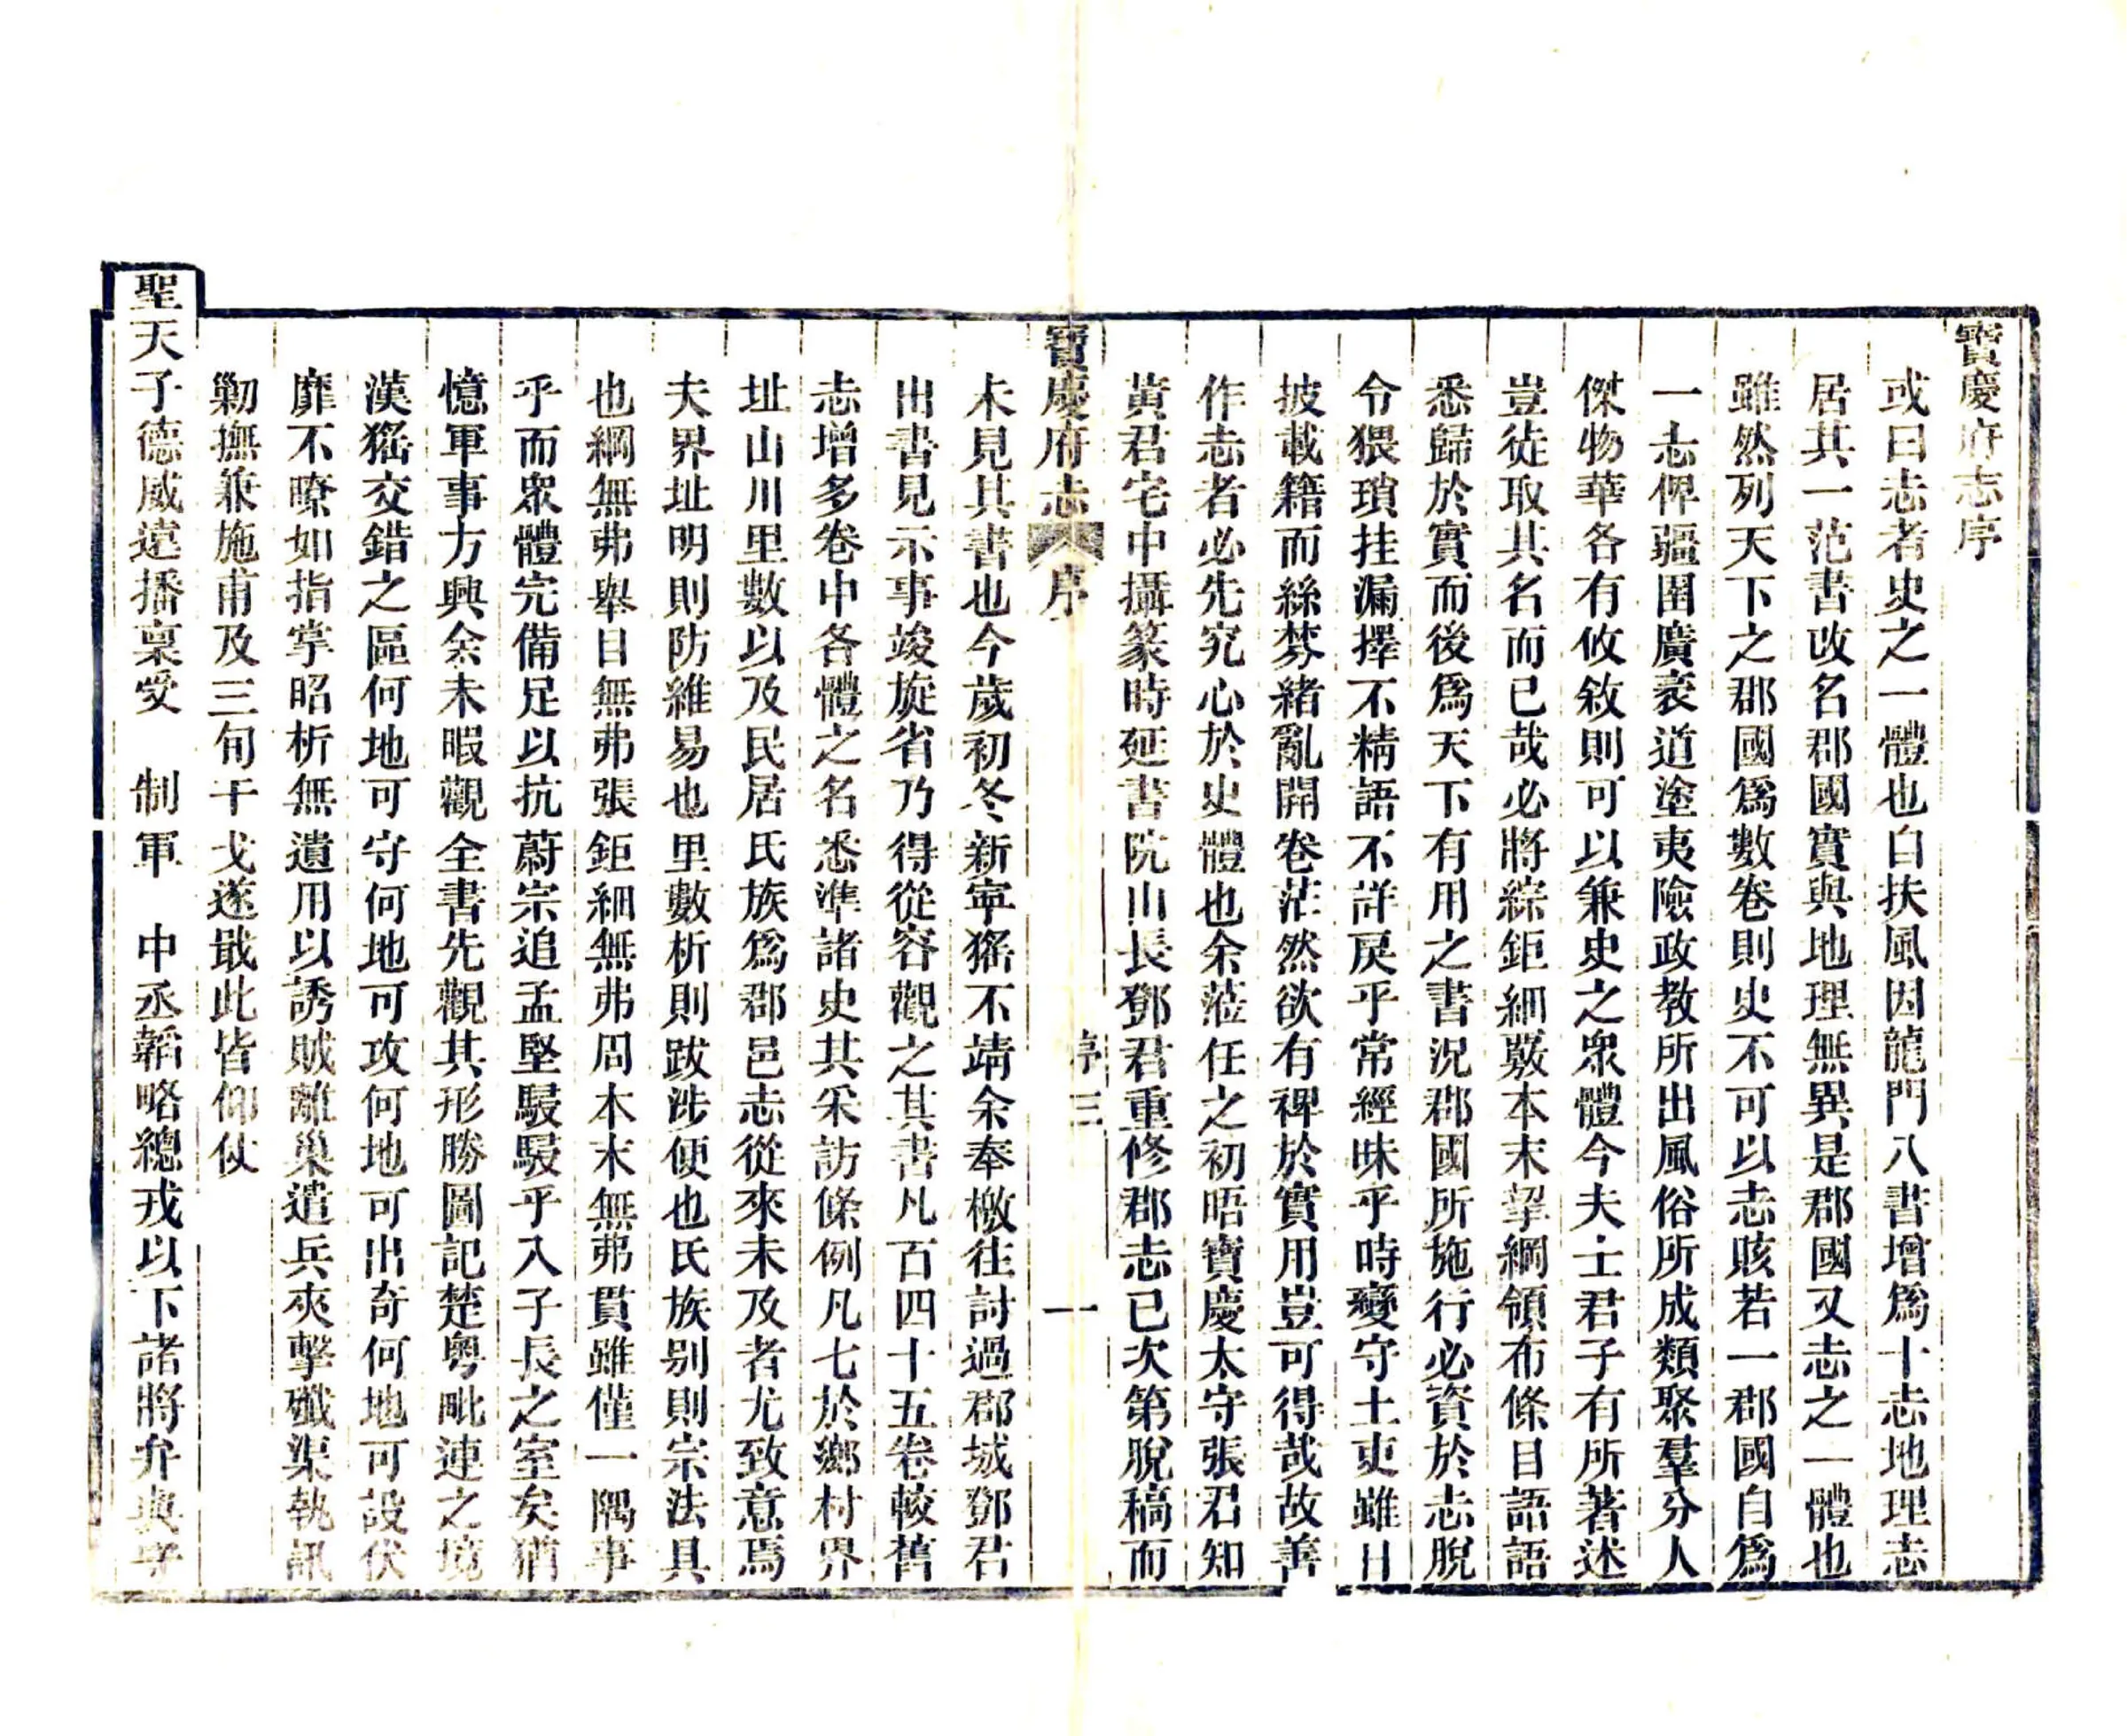 寶慶府志序
或曰志者史之一體也自扶風因龍門八書增爲十志地理志
居其一范書改名郡國實與地理無異是郡國又志之一體也
雖然列天下之郡國爲數卷則史不可以志賅若一郡國自爲
一志俾疆圉廣袤道塗夷險政教所出風俗所成類聚羣分人
傑物華各有攸敘則可以兼史之衆體今夫士君子有所著述
豈徒取其名而已哉必將綜鉅細覈本末挈綱領布條目語語
悉歸於實而後爲天下有用之書況郡國所施行必資於志脫
令猥瑣挂漏擇不精語不詳戾乎常經昧乎時變守土吏雖日
披載籍而絲棼緒亂開卷茫然欲有裨於實用豈可得哉故善
作志者必先究心於史體也余蒞任之初晤寶慶太守張君知
黃君宅中攝篆時延書院山長鄧君重修郡志已次第脫稿而
寶慶府志 序 序三 一
未見其書也今歲初冬新寧猺不靖余奉檄往討過郡城鄧君
出書見示事竣旋省乃得從容觀之其書凡百四十五卷較舊
志增多卷中各體之名悉準諸史其采訪條例凡七於鄉村界
址山川里數以及民居氏族爲郡邑志從來未及者尤致意焉
夫界址明則防維易也里數析則跋涉便也氏族别則宗法具
也綱無弗舉目無弗張鉅細無弗周本末無弗貫雖僅一隅事
乎而衆體完備足以抗蔚宗追孟堅駸駸乎入子長之室矣猶
憶軍事方興余未暇觀全書先觀其形勝圖記楚粵毗連之境
漢猺交錯之區何地可守何地可攻何地可出奇何地可設伏
靡不暸如指掌昭析無遺用以誘賊離巢遣兵夾擊殲渠執訊
勦撫兼施甫及三旬干戈遂戢此皆仰仗
聖天子德威遠播稟受 制軍 中丞韜略總戎以下諸將弁與守